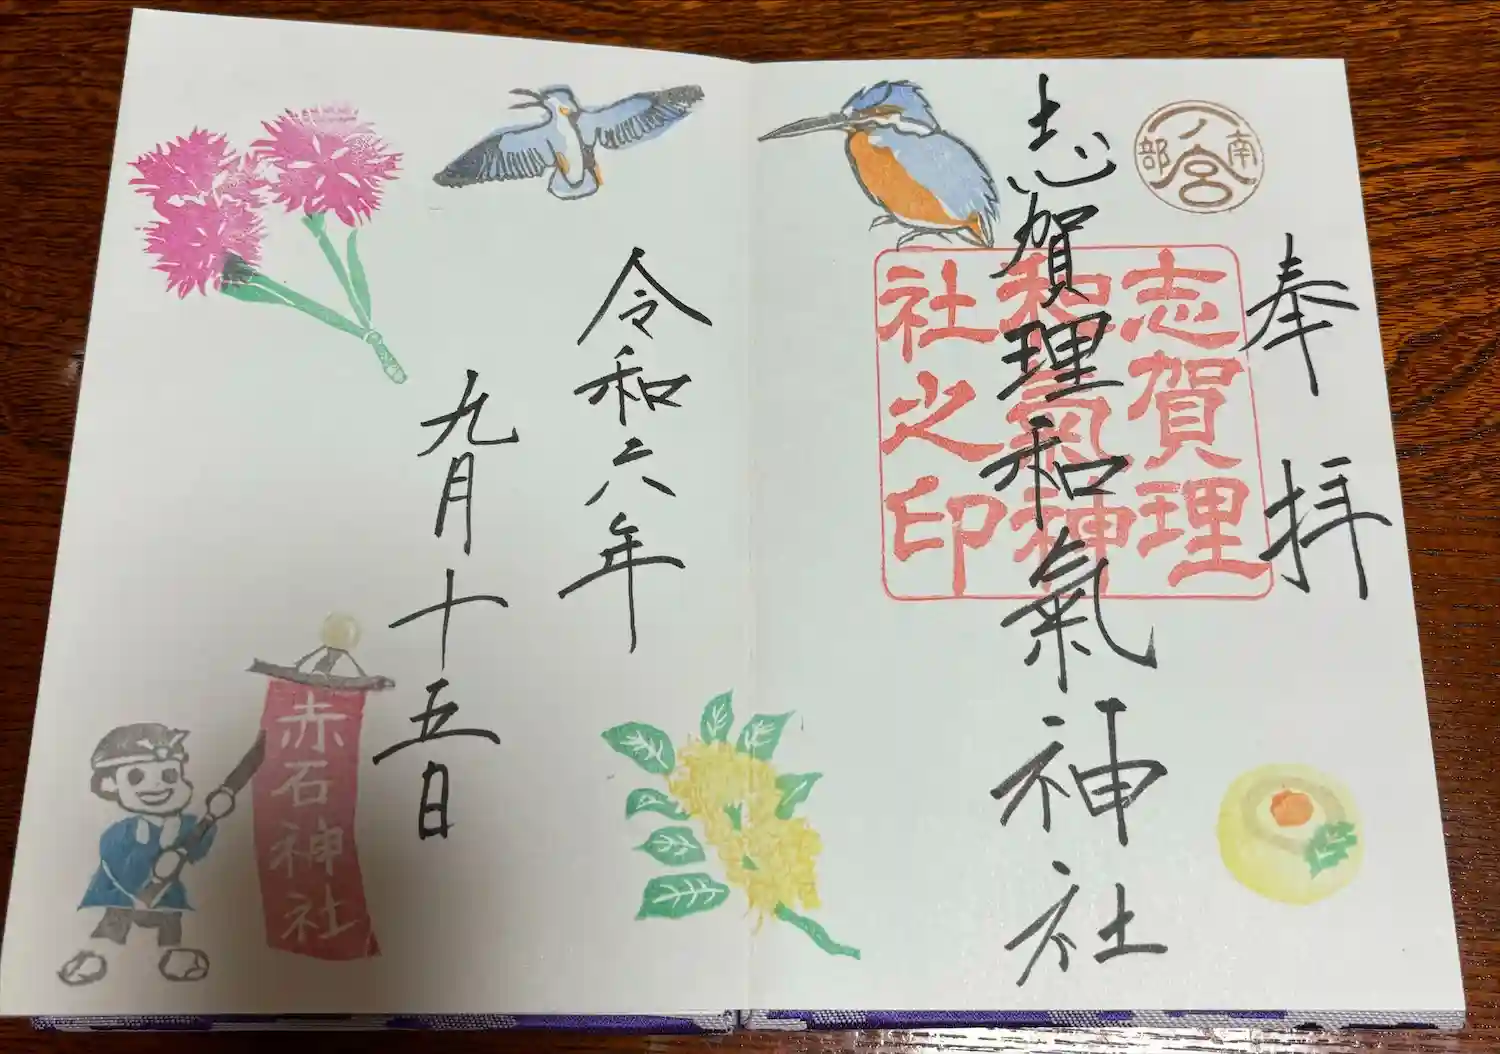 奉拝
南部
一ノ宮
志賀理和氣神社
志賀理
和氣神
社之印
令和六年
九月十五日
赤石神社